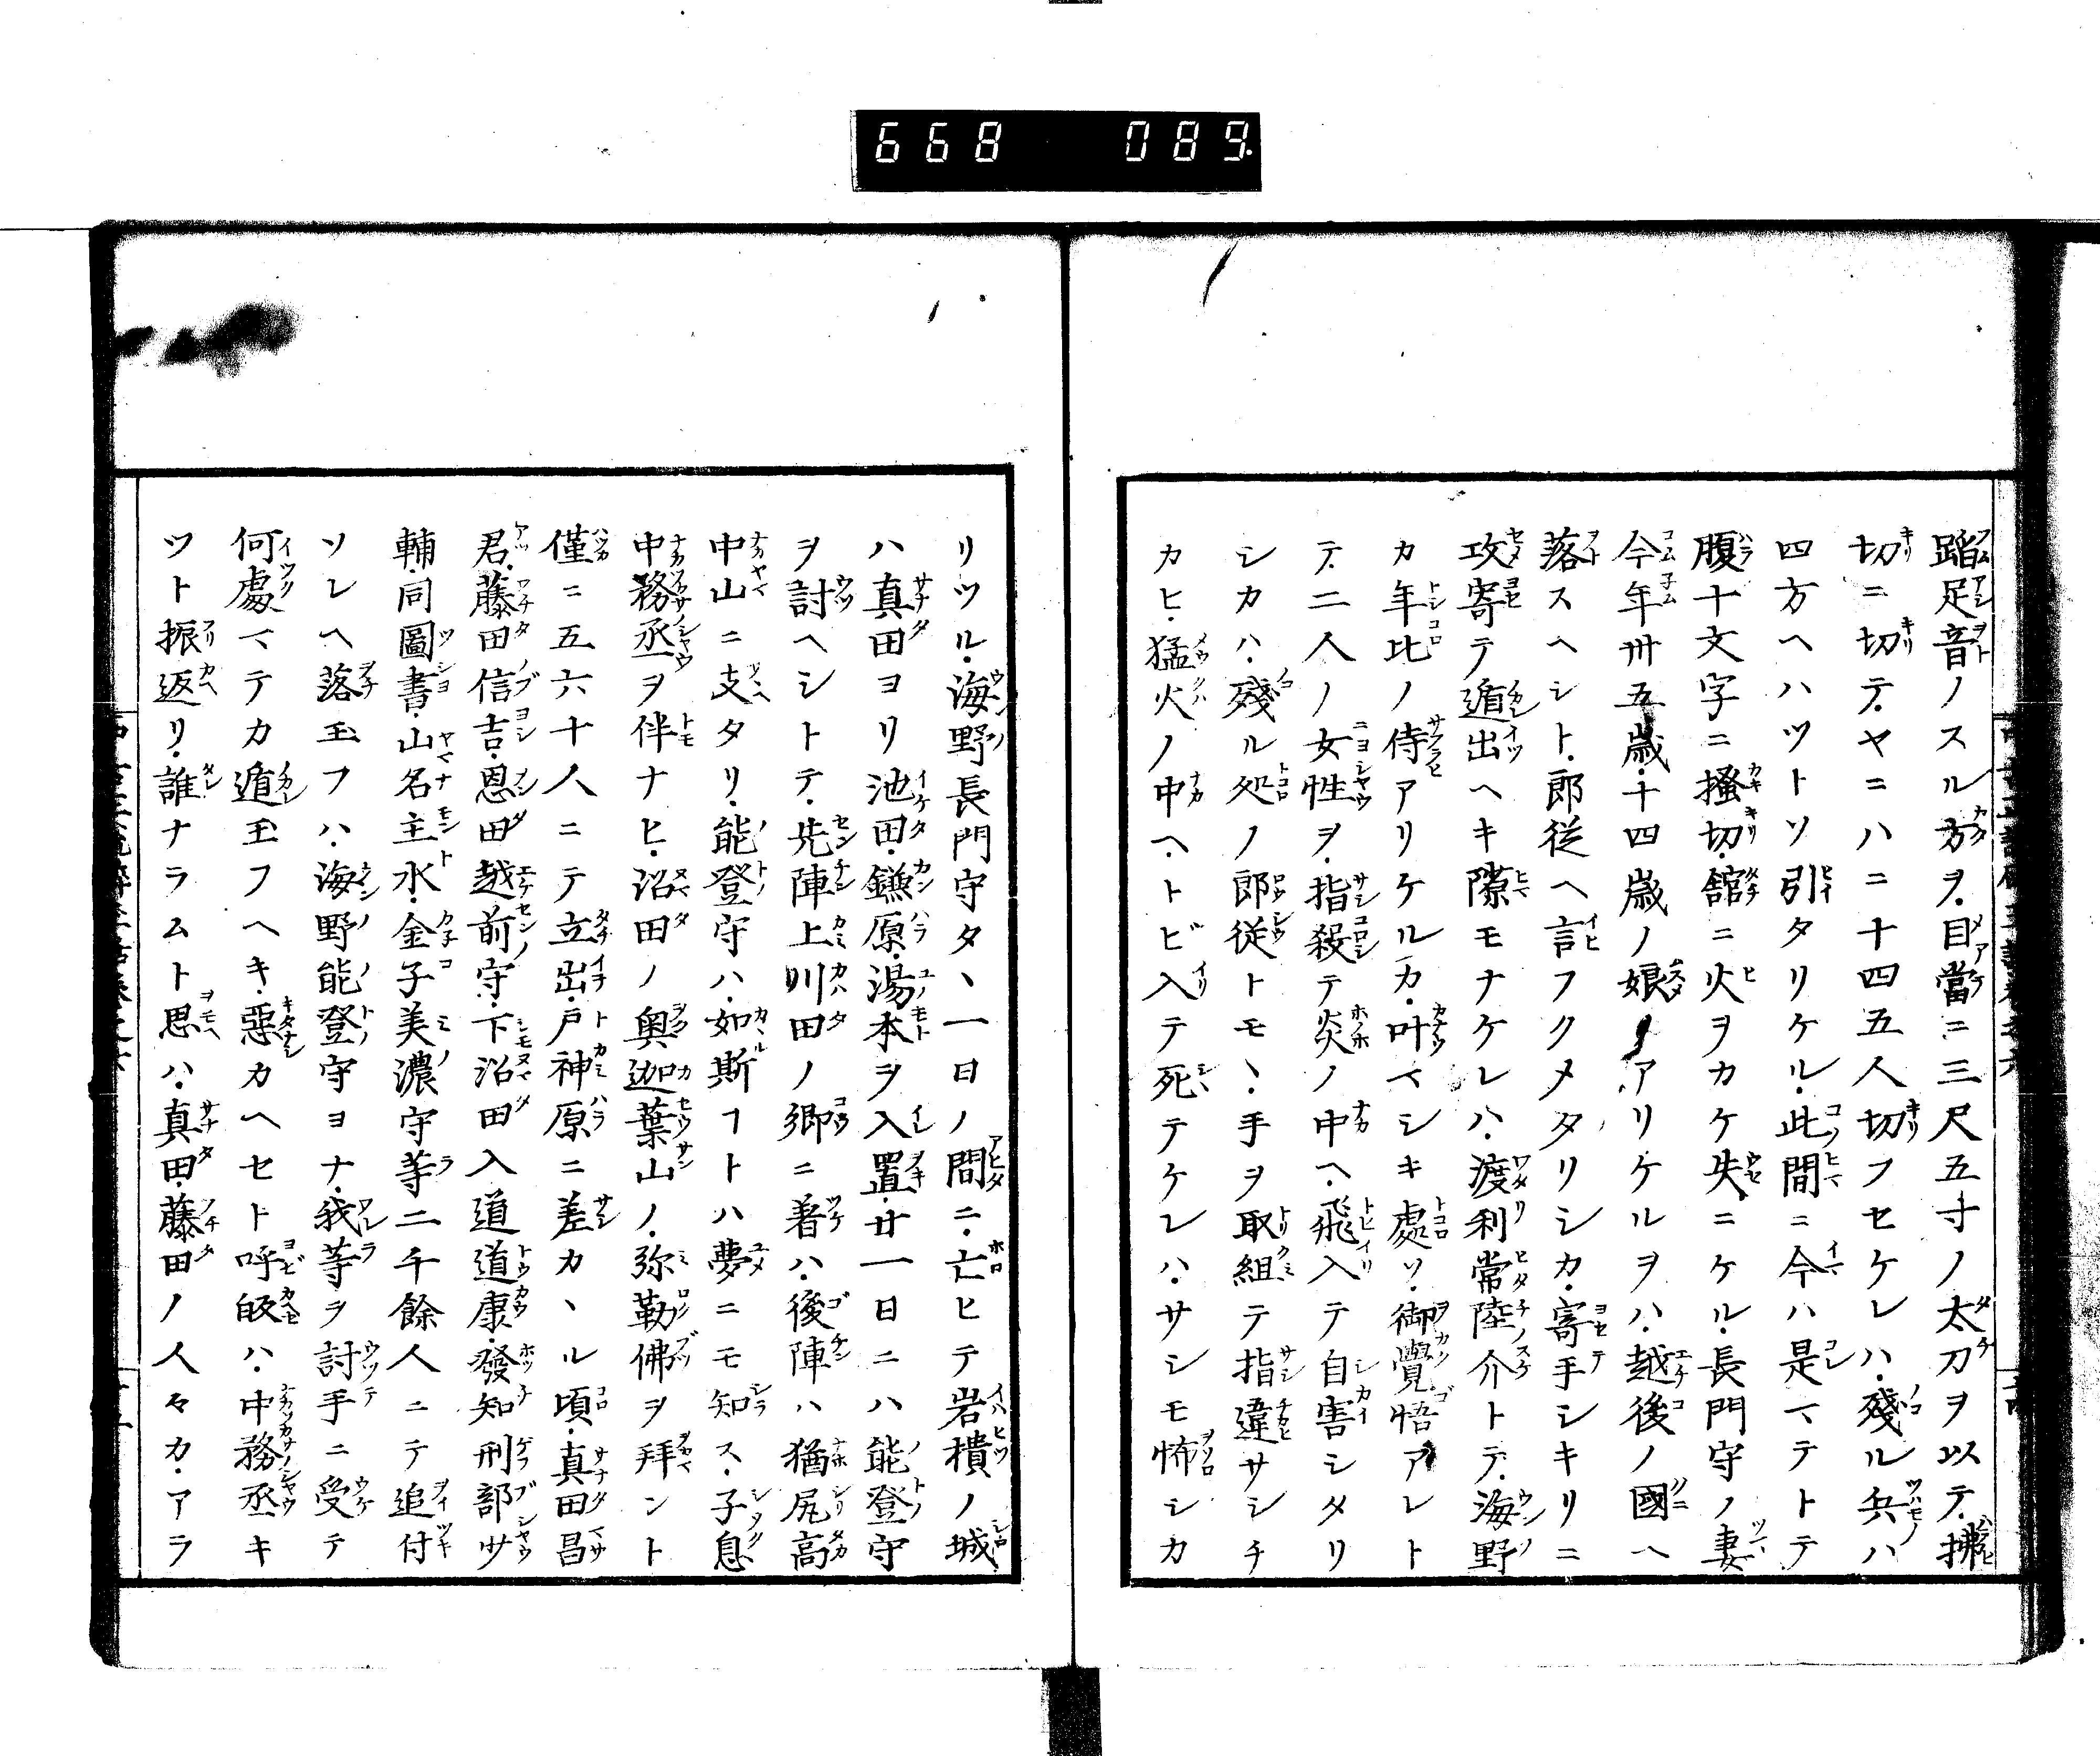 668 089.
蹈足音ノスル方ヲ、目當ニ三尺五寸ノ太刀ヲ以テ、拂
切ニ切テ、ヤニハニ十四五人切フセケレハ、殘ル兵ハ
四方ヘハツトソ引タリケル、此間ニ今ハ是マテトテ
腹十文字ニ掻切、舘ニ火ヲカケ失ニケル、長門守ノ妻
今年卅五歳、十四歳ノ娘ノアリケルヲハ、越後ノ國ヘ
落スヘシト、郎従ヘ言フクメタリシカ、寄手シキリニ
攻寄テ遁出ヘキ隙モナケレハ、渡利常陸介トテ、海野
カ年比ノ侍アリケルカ、叶マシキ處ソ、御覺悟アレト
テ、二人ノ女性ヲ、指殺テ炎ノ中ヘ、飛入テ自害シタリ
シカハ、殘ル処ノ郎従トモヽ、手ヲ取組テ指違サシチ
カヒ、猛火ノ中ヘ、トビ入テ死テケレハ、サシモ怖シカ
リツル、海野長門守タヽ一日ノ間ニ、亡ヒテ岩櫃ノ城
ハ真田ヨリ池田、鎌原、湯本ヲ入置、廿一日ニハ能登守
ヲ討ヘシトテ、先陣上川田ノ郷ニ着ハ、後陣ハ猶尻高
中山ニ支タリ、能登守ハ、如斯フトハ夢ニモ知ス、子息
中務丞ヲ伴ナヒ、沼田ノ奥迦葉山ノ、弥勒佛ヲ拜ント
僅ニ五六十人ニテ立出、戸神原ニ差カヽル頃、真田昌
君、藤田信吉、恩田越前守、下沼田入道道康、發知刑部少
輔、同圖書、山名主水、金子美濃守等二千餘人ニテ追付
ソレヘ落玉フハ、海野能登守ヨナ、我等ヲ討手ニ受テ
何處マテカ遁玉フヘキ、惡カヘセト呼皈ハ、中務丞キ
ツト振返リ、誰ナラムト思ハ、真田、藤田ノ人々カ、アラ